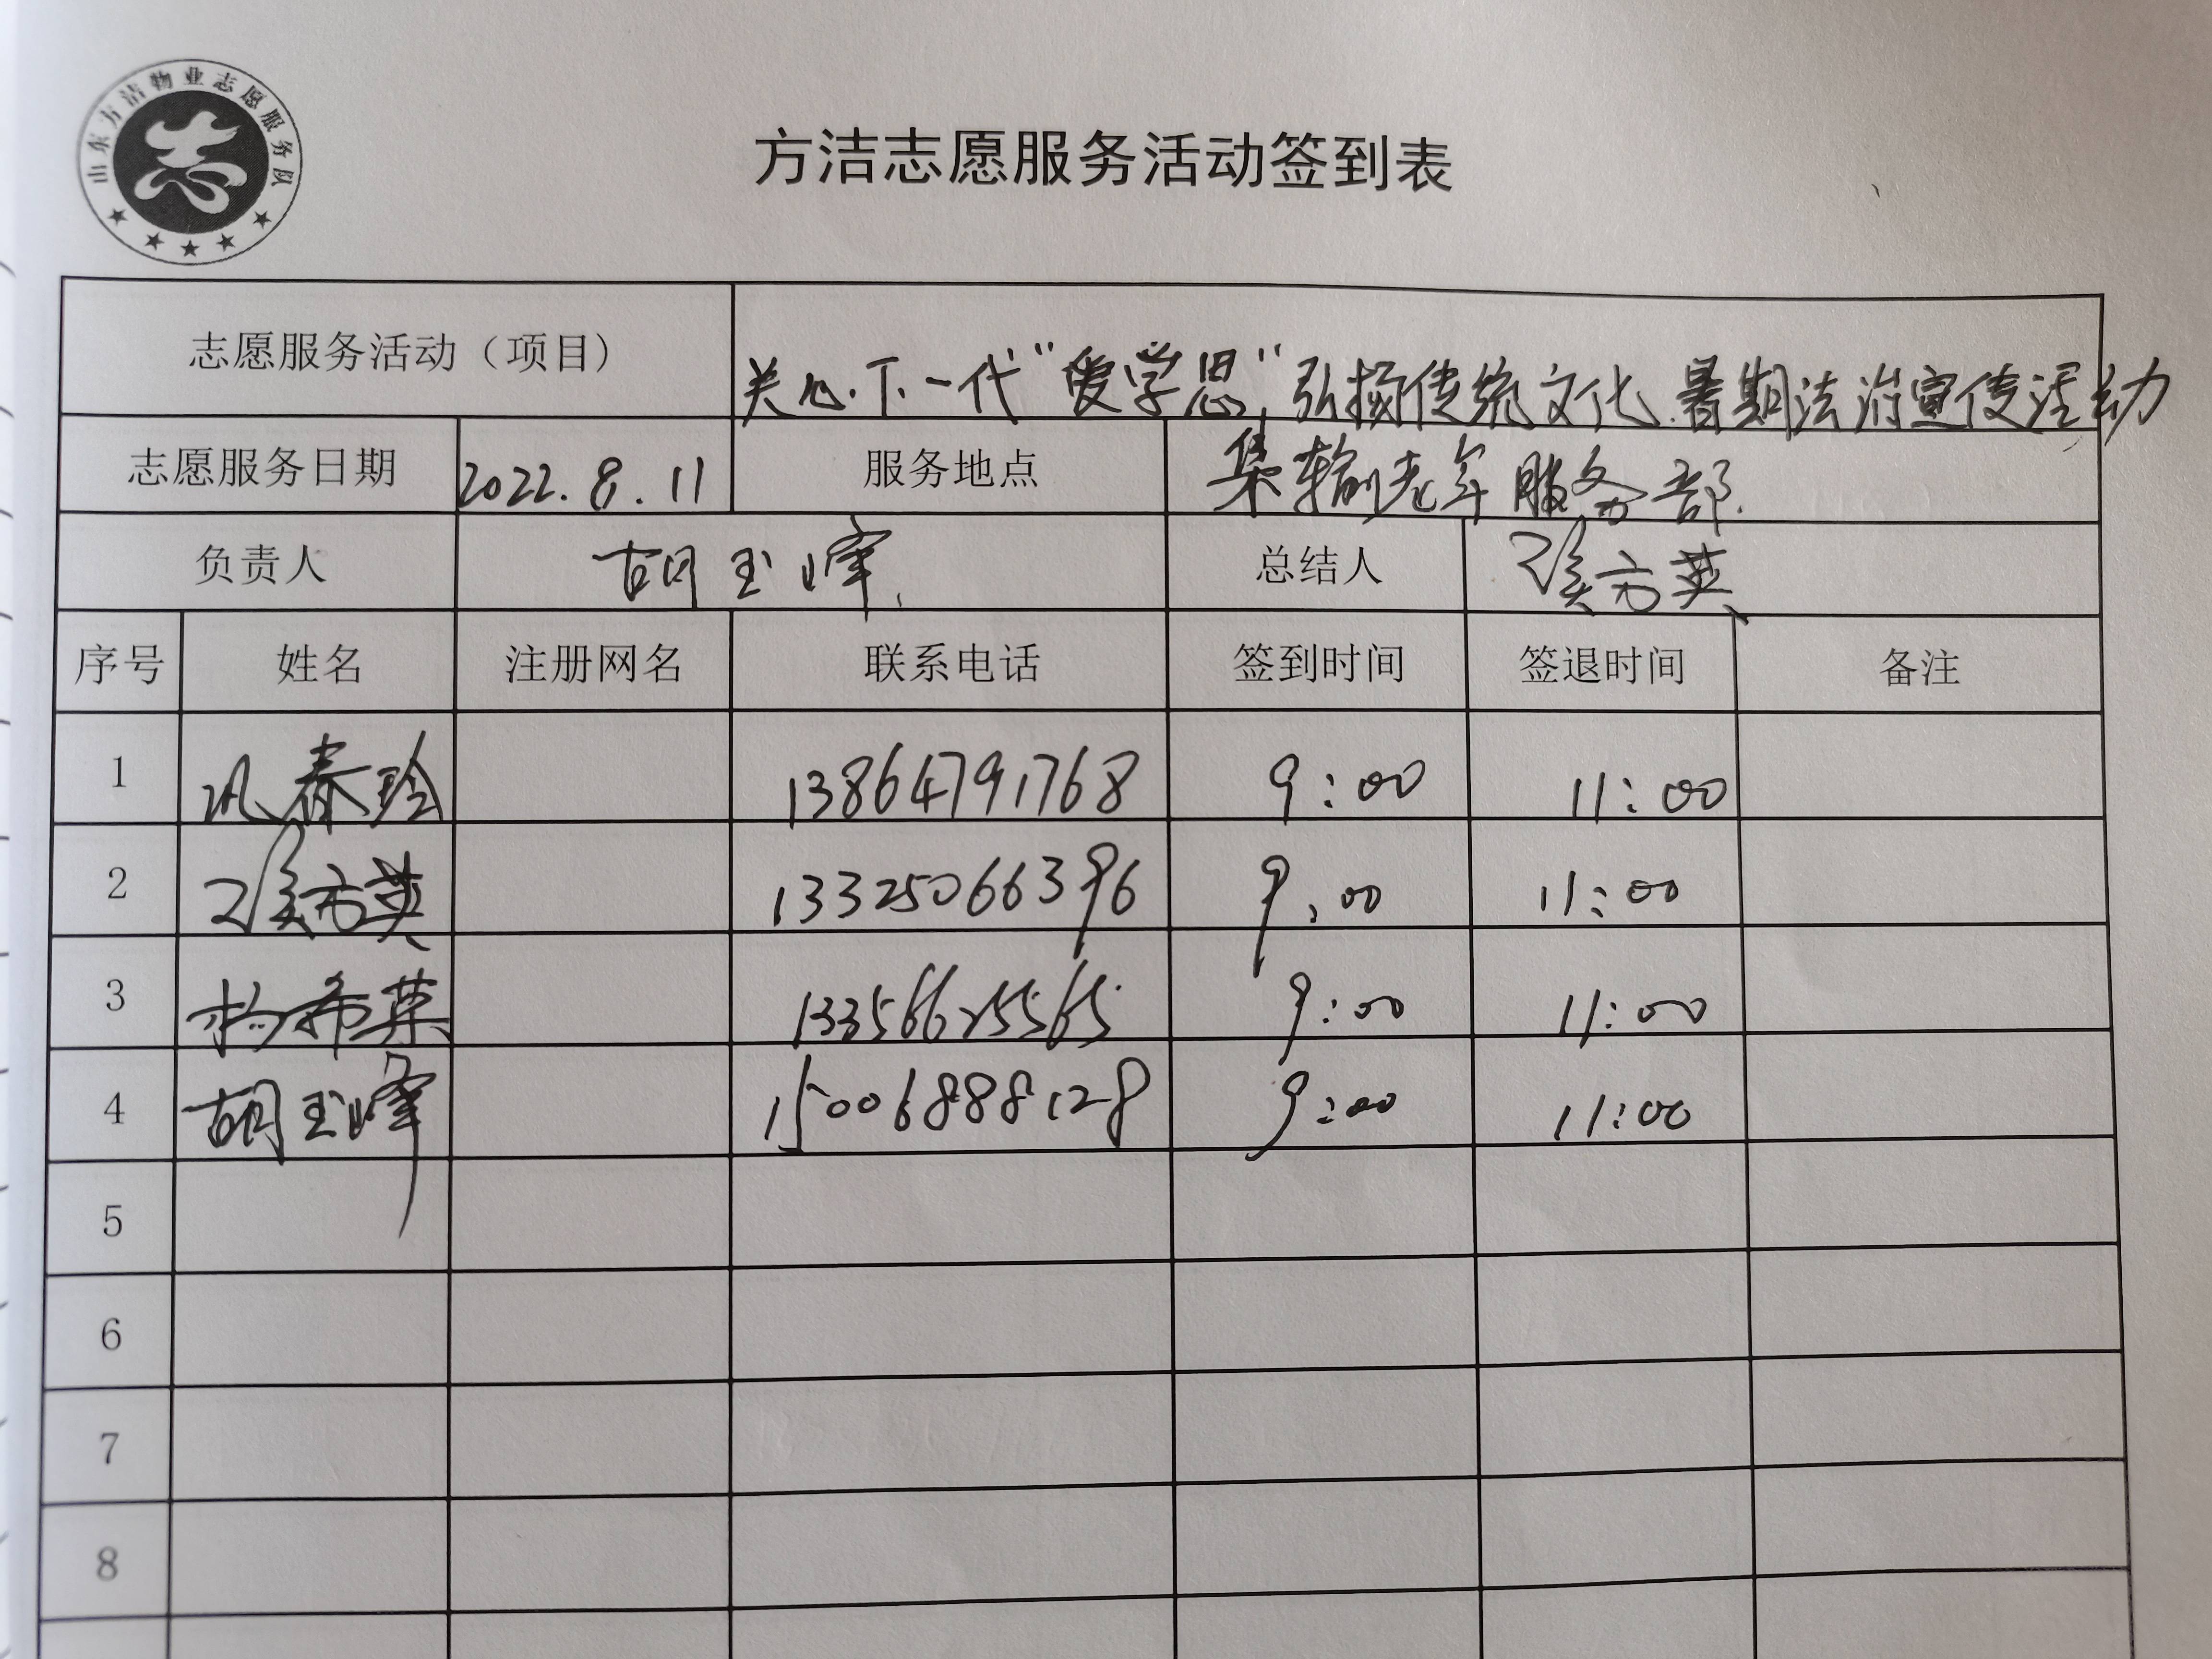 山东方洁物业志愿服务队
方洁志愿服务活动签到表
志愿服务活动（项目） 关心下一代"爱学思"弘扬传统文化.暑期法治宣传活动
志愿服务日期 2022.8.11 服务地点 集输老年服务部.
负责人 胡玉峰 总结人 方英
序号 姓名 注册网名 联系电话 签到时间 签退时间 备注
1 巩春玲 13864791768 9:00 11:00
2 方英 13325066396 9:00 11:00
3 杨希英 13356625565 9:00 11:00
4 胡玉峰 15006888128 9:00 11:00
5
6
7
8